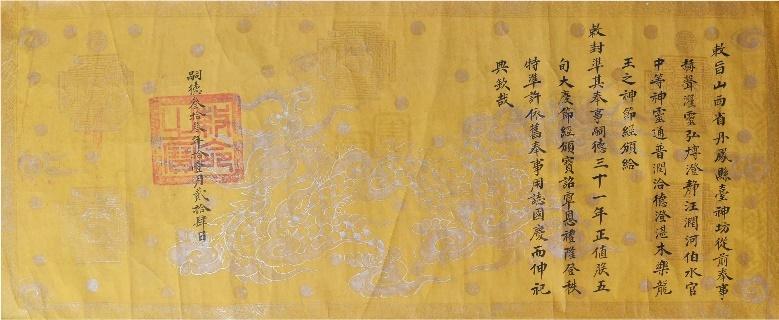 敕旨山西省丹鳳縣臺神坊從前奉事
赫聲濯靈弘博澄靜汪潤河伯水官
中等神靈通普潤洽德澄湛木樂龍
王之神節經頒給
敕封準其奉事嗣德三十一年正值朕五
旬大慶節經頒寶詔覃恩禮隆登秩
特準許依舊奉事用誌國慶而伸祀
典欽哉
嗣德叁拾叁年拾壹月貳拾肆日
敕命之寶